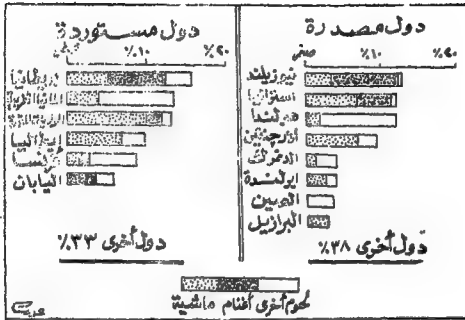 دول مصدرة
صفر ٪١٠ ٪٢٠
نيوزيلند
استراليا
هولندا
أورجنتين
الدنمرك
ايرلندة
الصين
البرازيل
دول أخرى ٣٨٪
دول مستوردة
صفر ٪١٠ ٪٢٠
بريطانيا
المانيا الغربية
الولايات المتحدة
إيطاليا
فرنسا
اليابان
دول أخرى ٣٣٪
لحوم أخرى أغنام ماشية